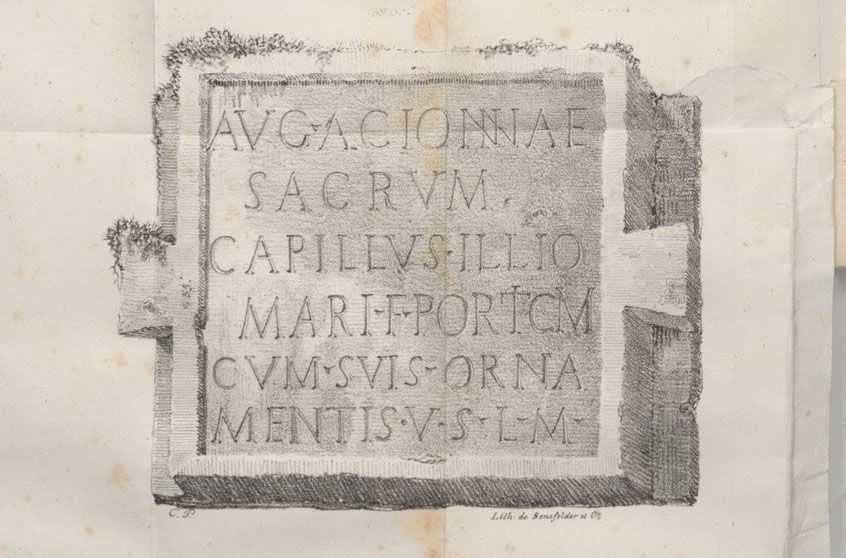 AVG·ACIONNAE
SACRVM.
CAPILLVS·ILLIO
MARI·F·PORTCM
CVM·SVIS·ORNA
MENTIS·V·S·L·M·
C. P
Lith: de Senefelder et Cie